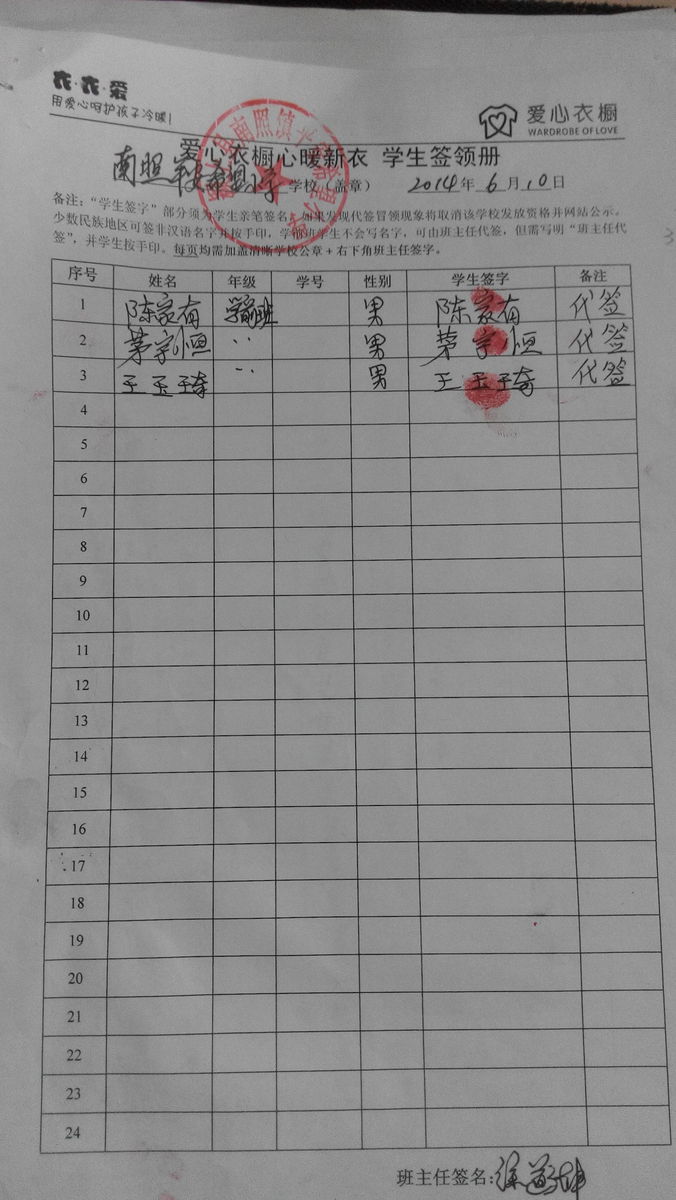 衣·衣·爱
用爱心呵护孩子冷暖!
爱心衣橱
WARDROBE OF LOVE
爱心衣橱心暖新衣 学生签领册
南照 学校（盖章） 2014年 6月10日
备注：“学生签字”部分须为学生亲笔签名，如果发现代签冒领现象将取消该学校发放资格并网站公示。
少数民族地区可签非汉语名字并按手印，学前班学生不会写名字，可由班主任代签，但需写明“班主任代
签”，并学生按手印。每页均需加盖清晰学校公章+右下角班主任签字。
序号 姓名 年级 学号 性别 学生签字 备注
1 陈家有 学前班 男 陈家有 代签
2 茅宇恒 〃 男 茅宇恒 代签
3 王玉琦 〃 男 王玉琦 代签
4
5
6
7
8
9
10
11
12
13
14
15
16
17
18
19
20
21
22
23
24
班主任签名: